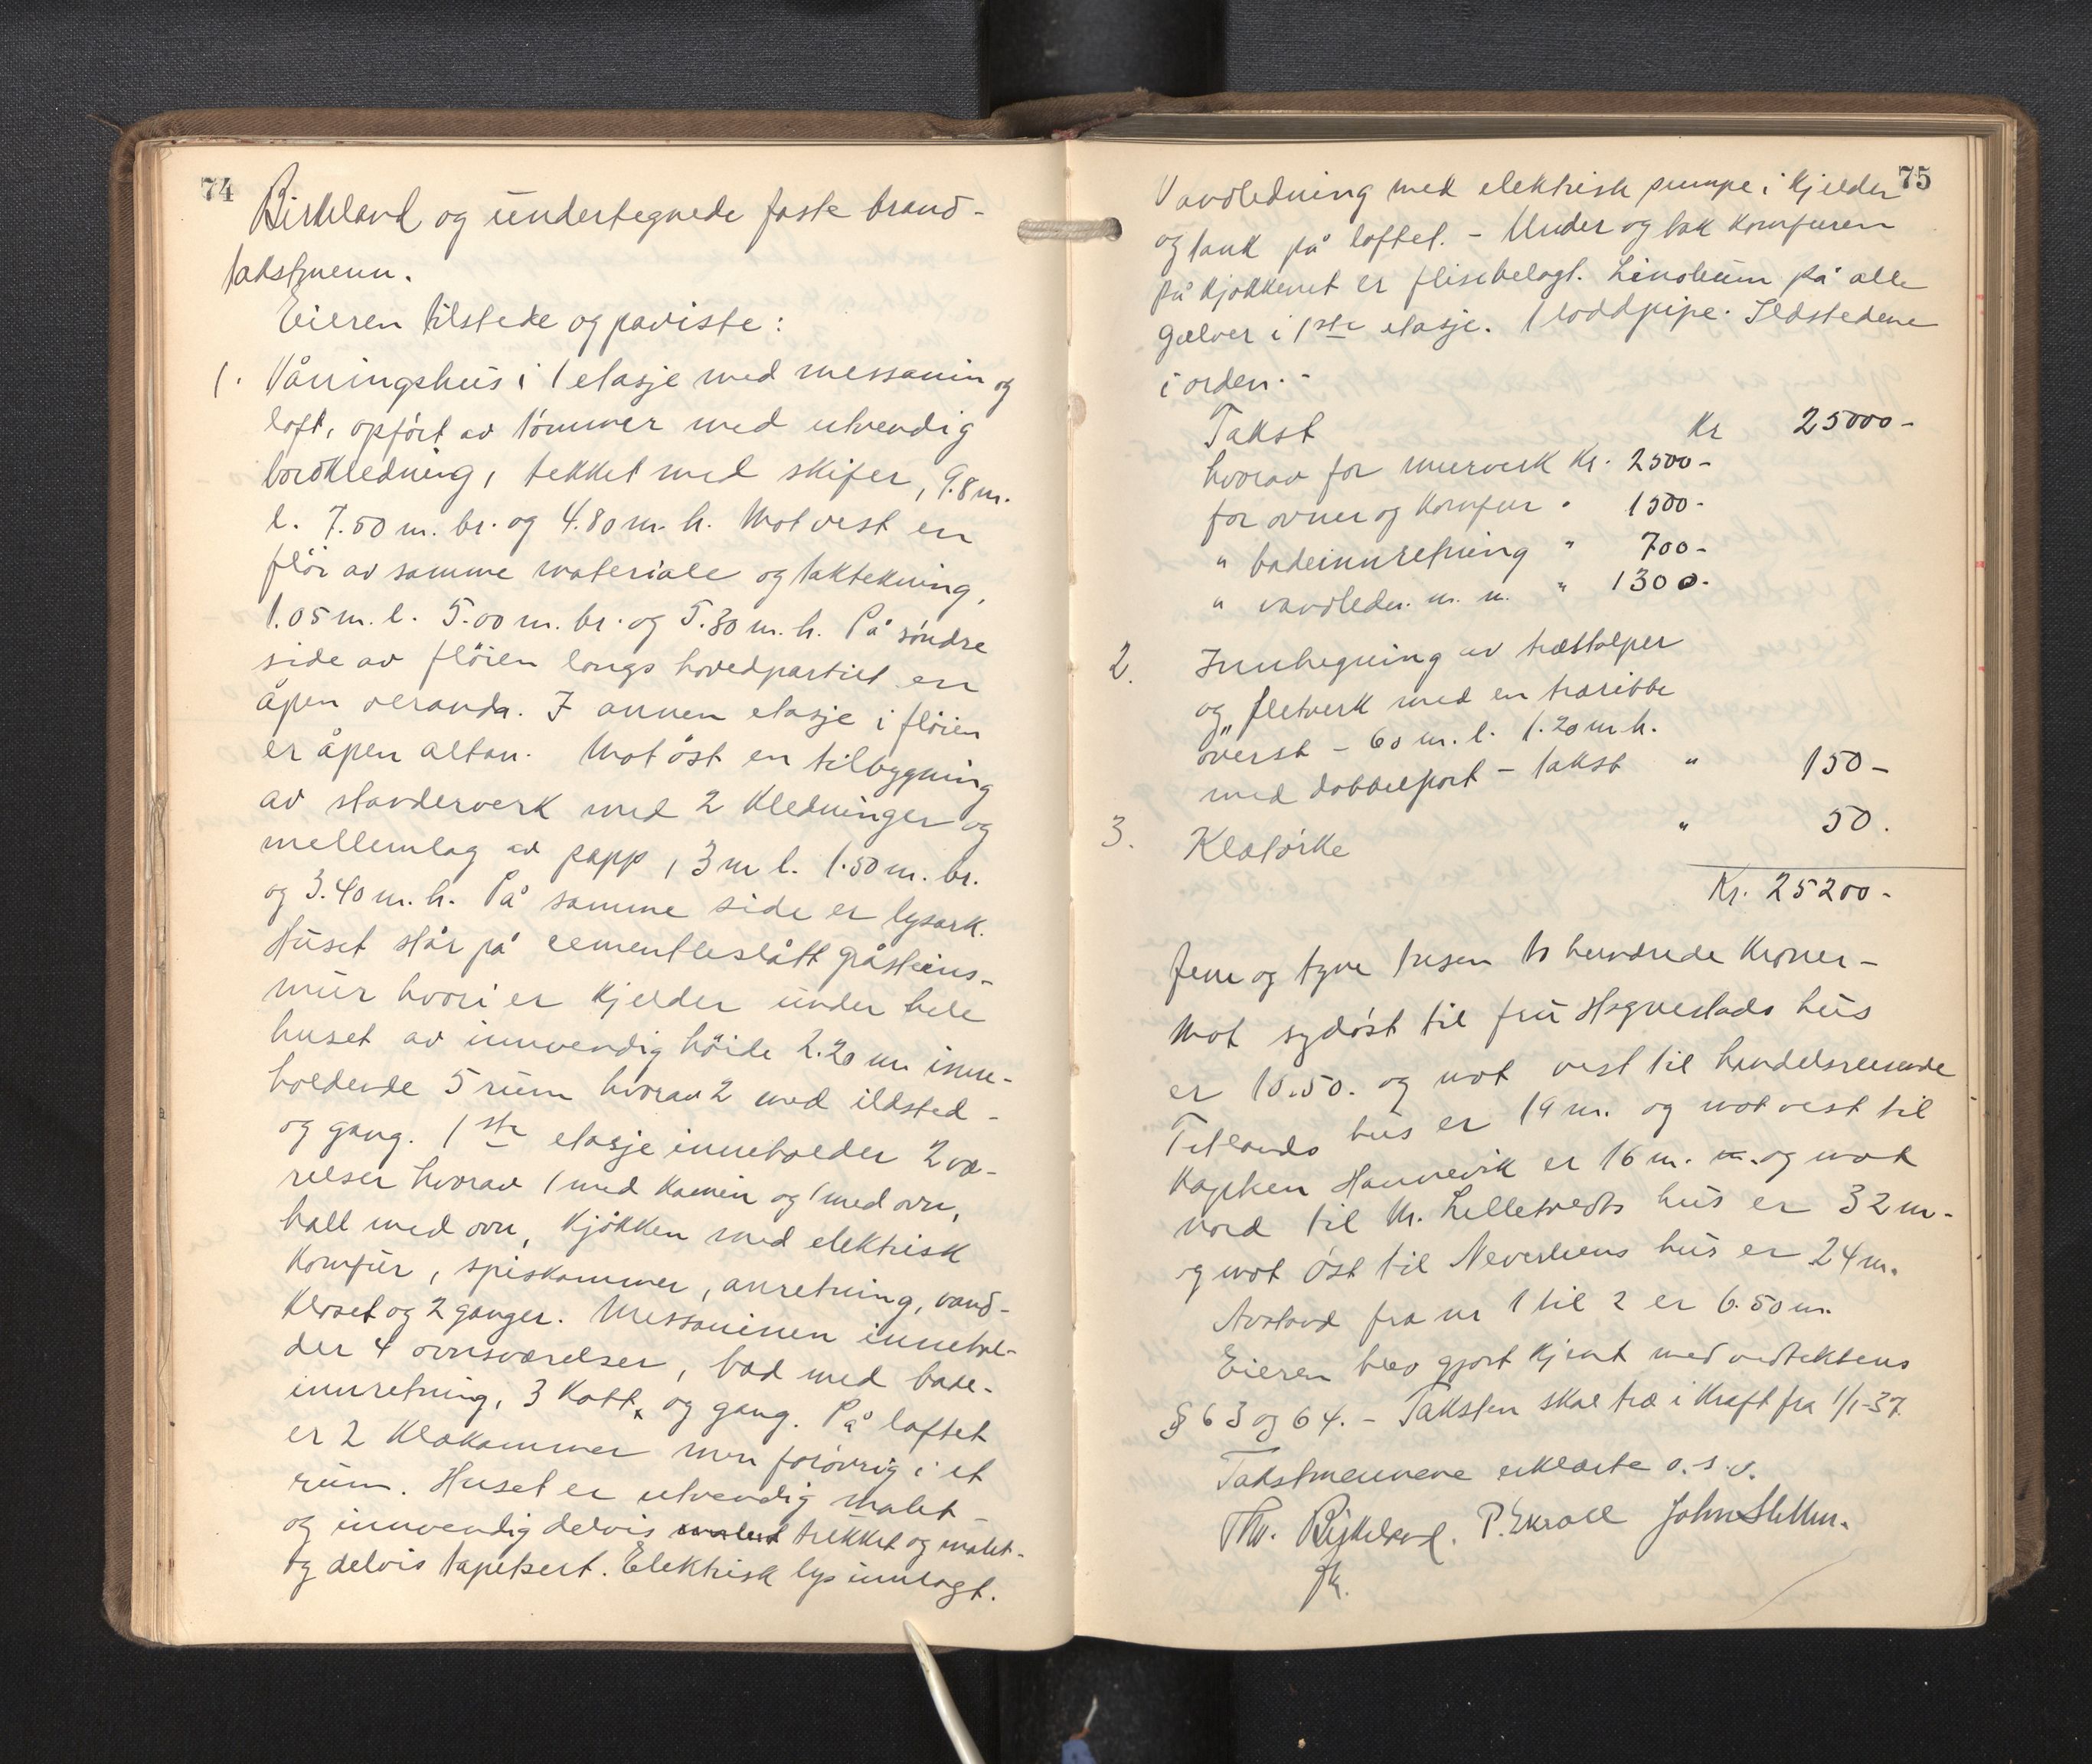 74
Birkeland og undertegnede faste brand-
takstmenn.
Eieren tilstede og paviste:
1. Våningshus i 1 etasje med messanin og
loft, opført av tømmer med utvendig
bordkledning, tekket med skifer, 9.8 m.
l. 7.50 m. br. og 4.80 m. h. Mot vest en
fløi av samme materiale og taktekning,
1.05 m. l. 5.00 m. br. og 5.30 m. h. På søndre
side av fløien langs hovedpartiet en
åpen veranda. I annen etasje i fløien
er åpen altan. Mot øst en tilbygning
av stenderverk med 2 kledninger og
mellemlag av papp, 3 m l. 1.50 m. br.
og 3.40 m. h. På samme side er lysark.
Huset står på cementleslått gråsteins-
mur hvori er kjelder under hele
huset av innvendig høide 2.20 m inne-
holdende 5 rum hvorav 2 med ildsted -
og gang. 1ste etasje inneholder 2 væ-
relser hvorav 1 med kamin og 1 med ovn,
hall med ovn, kjøkken med elektrisk
komfur, spiskammer, anretning, vand-
kloset og 2 ganger. Messaninen innehol-
der 4 ovnsværelser, bad med bade-
innretning, 3 kott, og gang. På loftet
er 2 klækammer men forøvrig i et
rum. Huset er utvendig malet
og innvendig delvis malert trekket og malet -
og delvis tapetsert. Elektrisk lys innlagt.
75
Vandledning med elektrisk pumpe i kjelder
og tank på loftet. - Under og bak komfuren
på kjøkkenet er flisebelagt. Linoleum på alle
gulver i 1ste etasje. 1 loddpipe. Ildstedene
i orden. -
Takst Kr 25000-
hvorav for murverk kr. 2500-
for ovner og komfur " 1500-
" badeinnretning " 700-
" vandledn. m. m. " 1300-
2. Innhegning av træstolper
og fletverk med en træribbe
øverst - 60 m. l. 1.20 m h.
med dobbelport - takst " 150-
3. Klatørke " 50.
Kr. 25200-
fem og tyve tusen to hundrede kroner -
Mot sydøst til fru Hognestads hus
er 10.50. og mot vest til handelsreisende
Tetlands hus er 19 m. og mot vest til
kaptken Hannevik er 16 m. m. og mot
nord til M. Lilletvedts hus er 32 m.
og mot øst til Neverliens hus er 24 m.
Avstand fra nr 1 til 2 er 6.50 m.
Eieren blev gjort kjent med vedtektens
§ 63 og 64. - Taksten skal træ i kraft fra 1/1-37.
Takstmennene erklærte o. s. v.
Th. Birkeland. P. Skraae John Sletten.
fk.